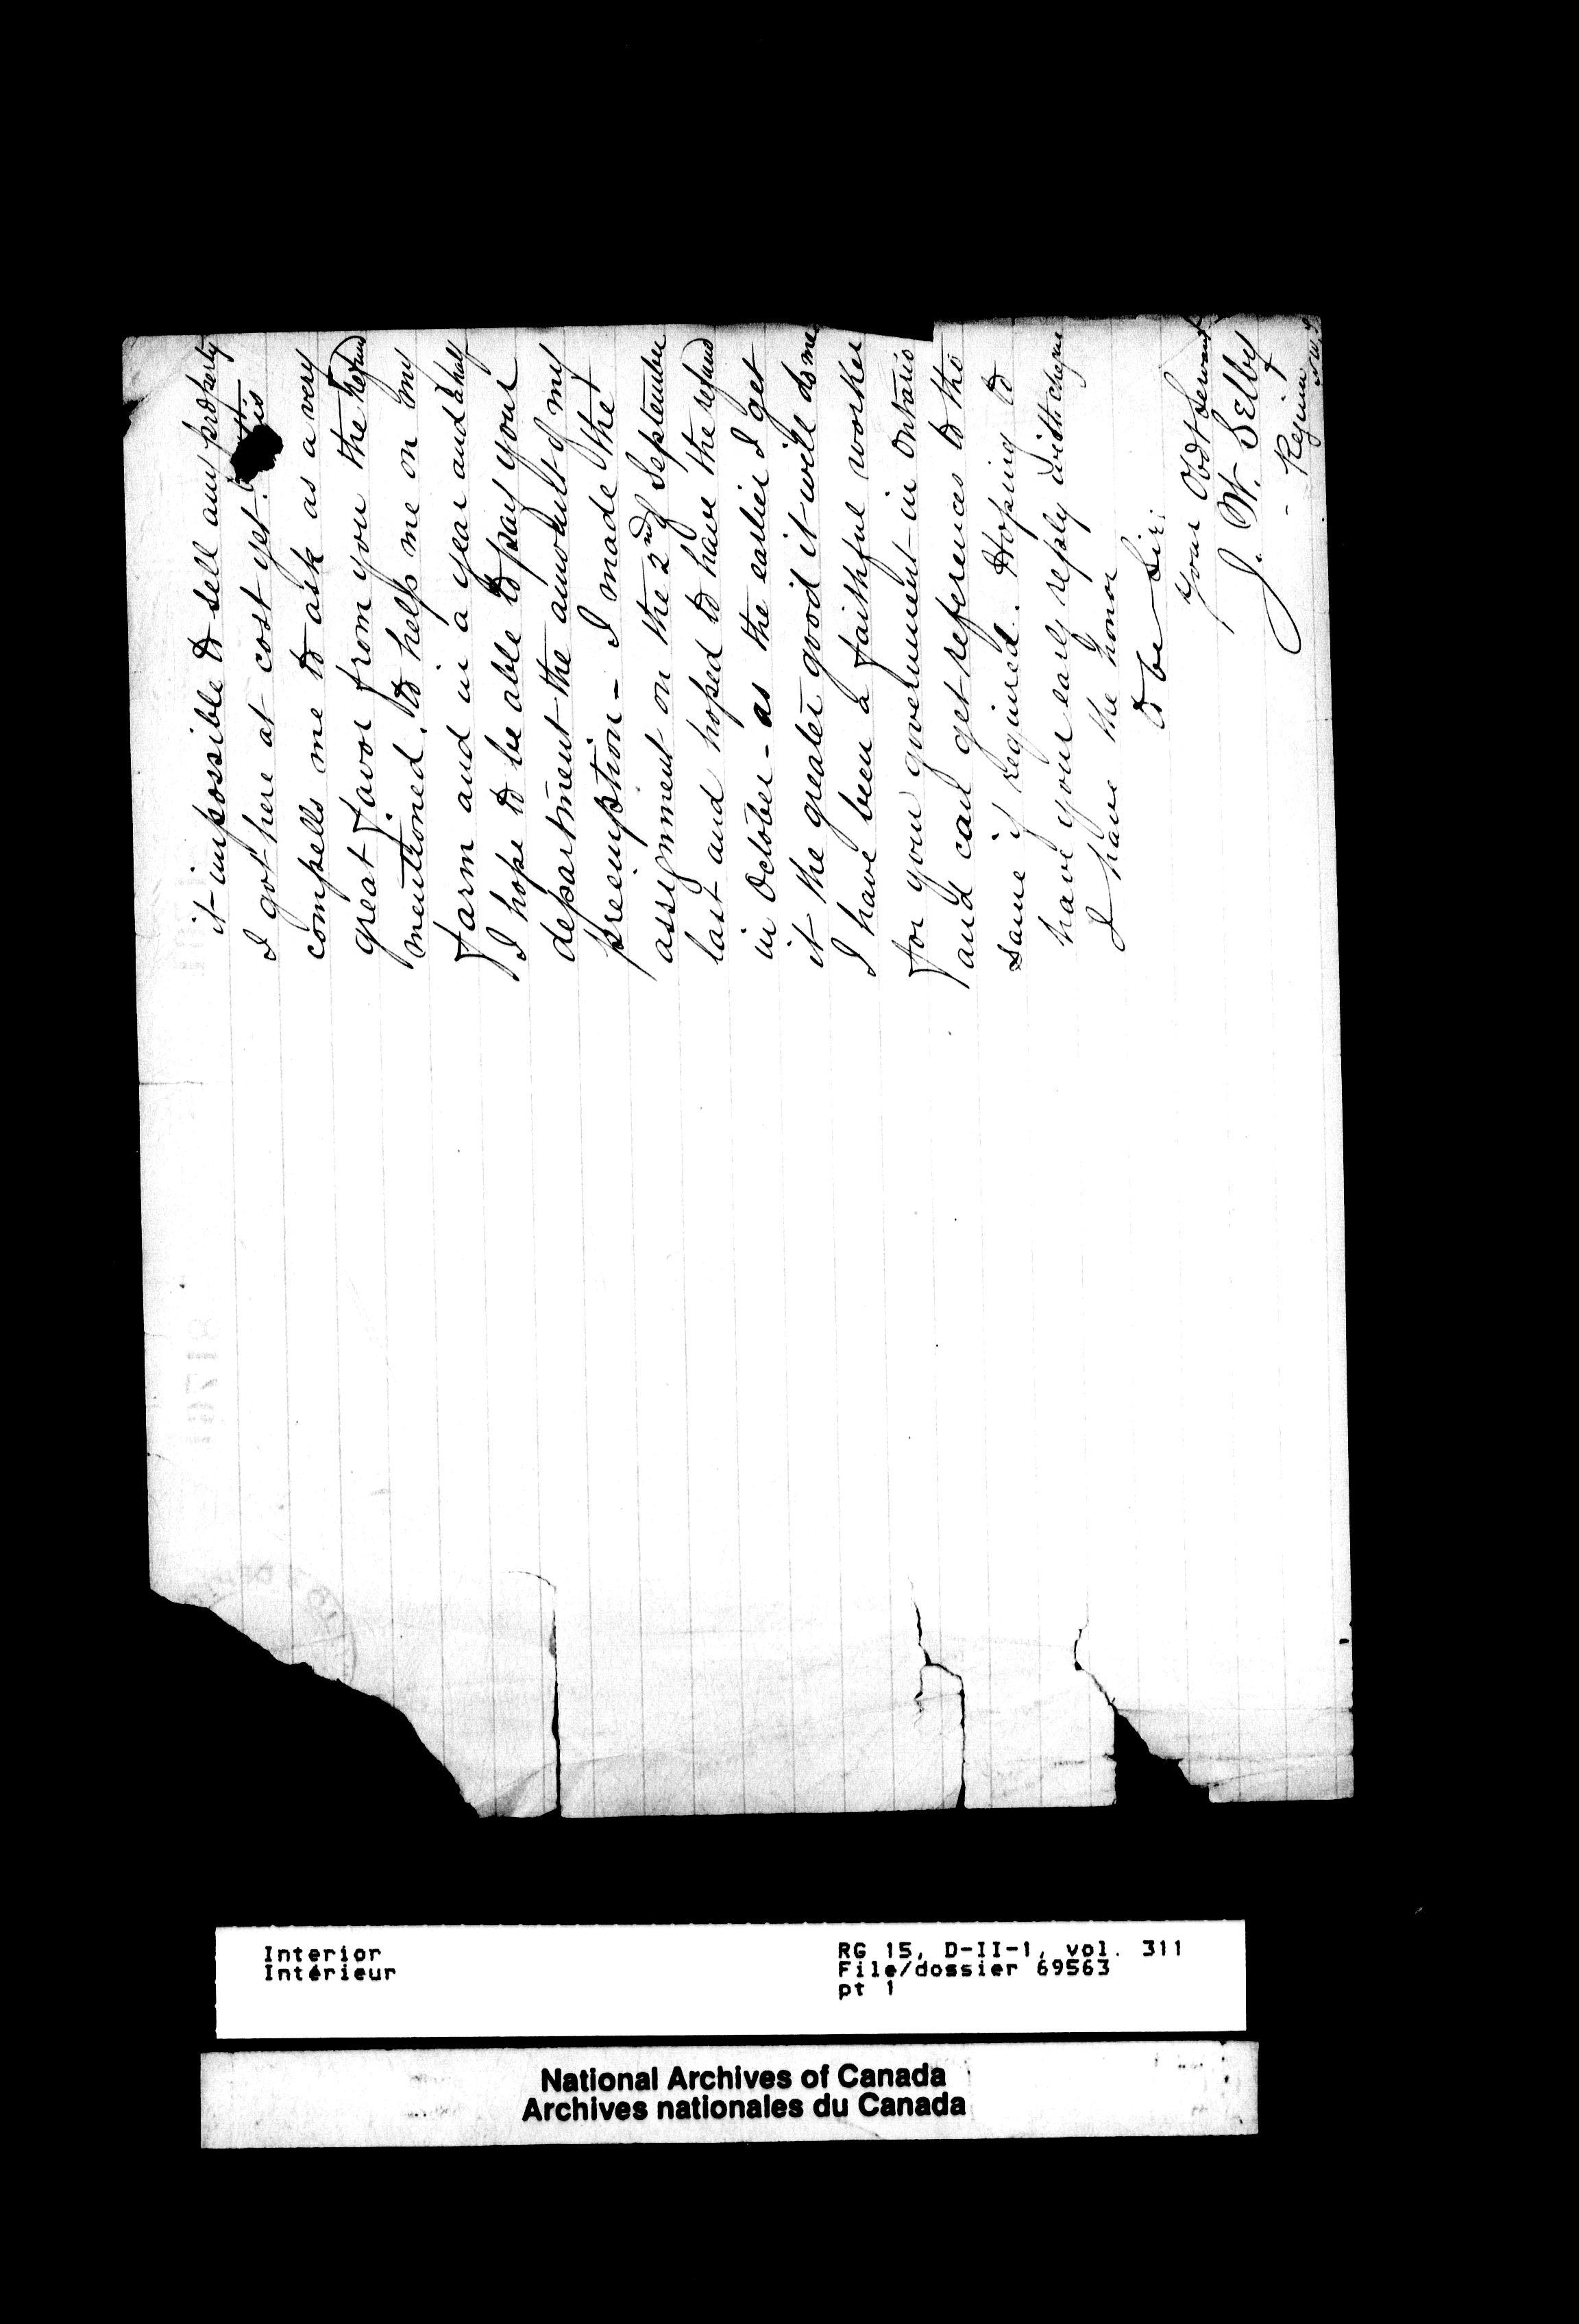 it impossible to sell any property
I got here at cost yet. this
compells me to ask as a very
great favor from you the Refund
mentioned. to help me on my
farm and in a year and a half
I hope to be able to pay your
department the amount of my
preemption - I made the
assignment on the 2nd September
last and hoped to have the refund
in October - as the earlier I get
it the greater good it will do me
I have been a faithful worker
for your government in Ontario
and can get references to the
same if required. Hoping to
have your early reply with cheque
I have the honor
to be Sir.
Your Obdt Servant
J. W. Selby
- Regina
N.W.T.
Interior
Intérieur
RG 15, D-II-1, vol. 311
File/dossier 69563
pt 1
National Archives of Canada
Archives nationales du Canada